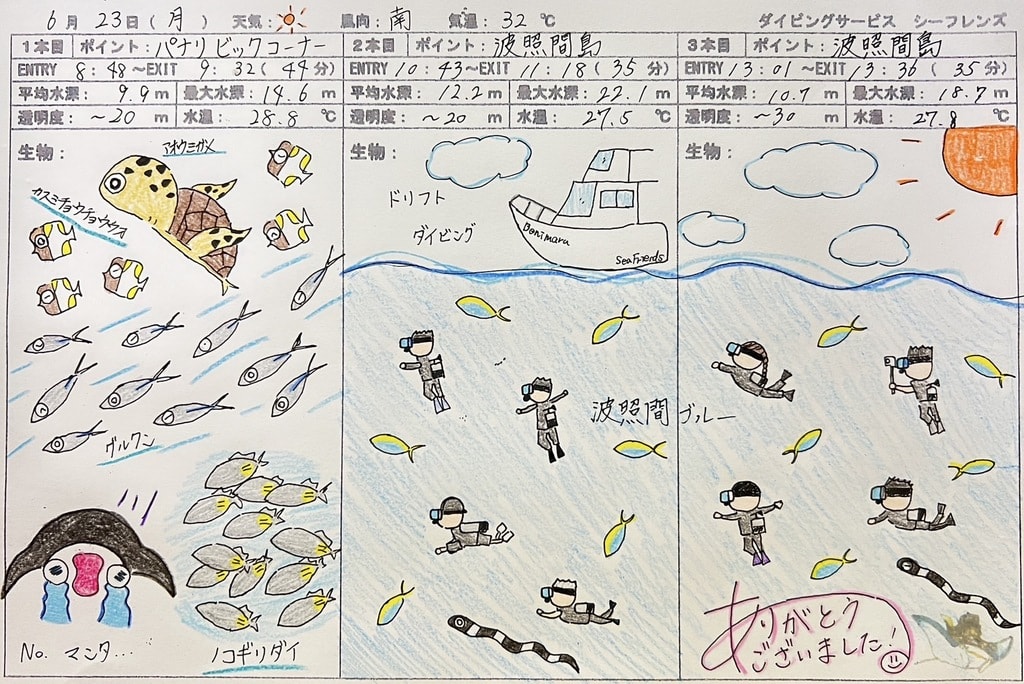 6月23日(月) 天気: 風向:南 気温:32℃ ダイビングサービス シーフレンズ
1本目 ポイント:パナリビックコーナー
ENTRY 8:48~EXIT 9:32(44分)
平均水深: 9.9m 最大水深:14.6m
透明度: ~20m 水温: 28.8℃
生物:
アオウミガメ
カスミチョウチョウウオ
グルクン
No. マンタ...
ノコギリダイ
2本目 ポイント:波照間島
ENTRY 10:43~EXIT 11:18(35分)
平均水深: 12.2m 最大水深:22.1m
透明度: ~20m 水温: 27.5℃
生物:
ドリフト
ダイビング
Benimaru
Seafriends
波照間ブルー
3本目 ポイント:波照間島
ENTRY 13:01~EXIT 13:36(35分)
平均水深: 10.7m 最大水深:18.7m
透明度: ~30m 水温: 27.8℃
生物:
ありがとう
ございました!